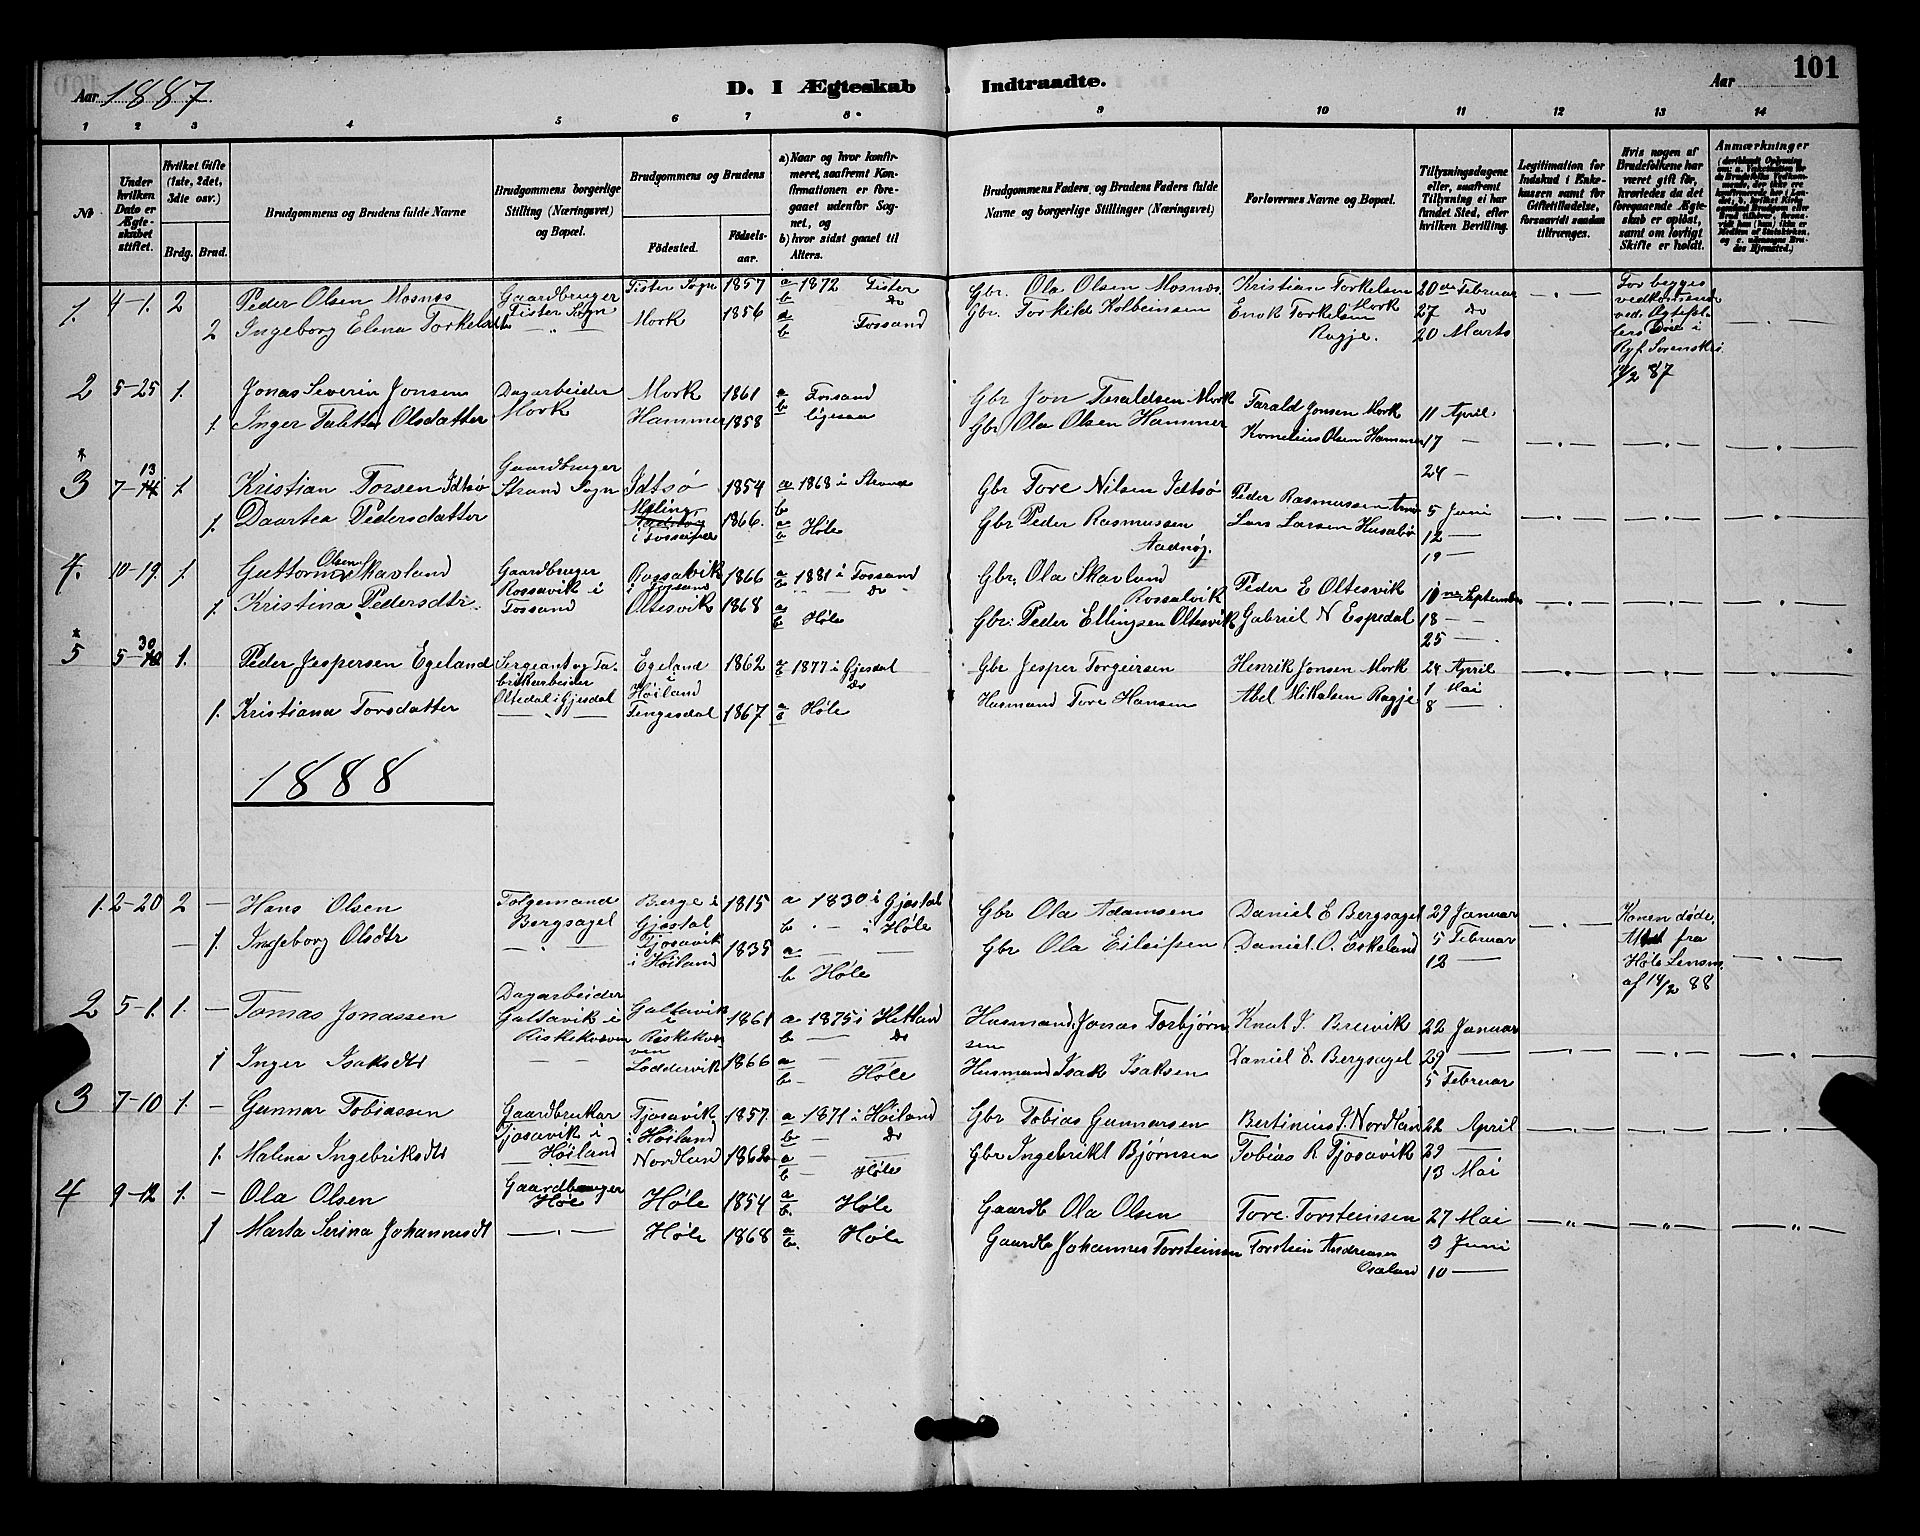 Aar 1887.
D. I Ægteskab Indtraadte.
Aar
101
1 2 3 4 5 6 7 8 9 10 11 12 13 14
№
Under hvilken Dato er Ægteskabet stiftet.
Hvilket Gifte (1ste, 2det, 3die osv.)
Brdg. Brud.
Brudgommens og Brudens fulde Navne
Brudgommens borgerlige Stilling (Næringsvei) og Bopæl.
Brudgommens og Brudens
Födested.
Födselsaar.
a) Naar og hvor konfirmeret, saafremt Konfirmationen er foregaaet udenfor Sognet, og
b) hvor sidst gaael til Alters.
Brudgommens Faders, og Brudens Faders fulde Navne og borgerlige Stillinger (Næringsvei)
Forlovernes Navne og Bopæl.
Tillysningsdagene eller, saafremt Tillysning ei har fundet Sted, efter hvilken Bevilling.
Legitimation for Indskud i Enkekassen samt for Giftetilladelse, forsaavidt saadan tiltrænges.
Hvis nogen af Brudefolkene har været gift för, hvorledes da det foregaaende Ægteskab er oplöst, samt om lovligt Skifte er holdt.
Anmærkninger
1. 4-1. 2 Peder Olsen Mosnes Gaardbruger Fister Sogn Fister Sogn 1857 a 1872 Fister b do Gbr. Ola Olsen Mosnes Kristian Torkelsen Mork 20de Februar
2 Ingeborg Elena Torkelsdtr — " — Mork 1856 a b Fossand Gbr. Torkild Kolbeinsen Enok Torkelsen Ragje. 27 do 20 Marts
For begges vedkommende ved Ægtefellers Død i Ryf. Sorenskr. 1/2 87
2 5-25 1. Jonas Severin Jonsen Dagarbeider Mork Mork 1861 a b Fossand Gbr Jon Taraldsen Mork Tarald Jonsen Mork 11 April
1. Inger Talette Olsdatter Hammer 1858 ligesaa Gbr Ola Olsen Hammer Kornelius Olsen Hammer 17 —
24 —
* 3 7-13 1. Kristian Torsen Idtsø Gaardbruger Strand Sogn Idtsø 1854 a 1868 i Strand b Gbr Tore Nilsen Idtsø Peder Rasmussen 5 Juni
1. Daartea Pedersdatter Meling i Fosseipet 1866. a b Høle Gbr Peder Rasmussen Aadnøj. Lars Larsen Husabø 12 —
19 —
4. 10-19. 1. Guttorm Olsen Skavland Gaardbruger Rossavik i Fossand Rossavik i Fossand 1866 a 1881 i Fossand b do Gbr. Ola Skavland Rossalvik Peder E Oltesvik 11 September
1. Kristina Pedersdtr. Oltesvik 1868 a b Høle Gbr. Peder Ellingsen Oltesvik Gabriel N Espedal 18 — 25 —
* 5 5-30 1. Peder Jespersen Egeland Sergeant og Fabrikarbeider Oltedal i Gjesdal Egeland i Høiland 1862 a 1877 i Gjesdal b do Gbr Jesper Torgeirsen Henrik Jonsen Mork 24 April
1. Kristiana Torsdatter — " — Fengesdal 1867 a b Høle Husmand Tore Hansen Abel Mikalsen Ragje 1 Mai 8 —
1888
1. 2-20 2 — Hans Olsen Folgemand Bergsagel Berge i Gjesdal 1815 a 1830 i Gjesdal b — i Høle Gbr Ola Adamsen Daniel E Bergsagel 29 Januar
— 1. Ingeborg Olsdtr Tjosavik i Høiland 1835 a b Høle Gbr Ola Eileifsen Daniel O. Eskeland 5 Februar 12 —
Konen døde. fra Høle Lensm. af 14/2 88
2 5-1. 1. — Tomas Jonassen Dagarbeider Galtavik i Riskekvæven Galtavik i Riskekvæven 1861 a 1875 i Hetland b — do Husmand Jonas Torbjørnsen Knut J. Breivik 22 Januar
1 Inger Isaksdtr Loddervik 1866 a b — Høle Husmand Isak Isaksen Daniel E. Bergsagel 29 — 5 Februar
3 7-10 1. — Gunnar Tobiassen Gaardbruker Tjosavik i Høiland Tjosavik i Høiland 1857 a 1871 i Høiland b — do Gbr Tobias Gunnarsen Bertinius J. Nordland 22 April
1. Malena Ingebriksdtr Nordlund 1862 a b — Høle Gbr Ingebrikt Bjørnsen Tobias R Tjosavik 29 — 13 Mai
4 9-12 1. — Ola Olsen Gaardbruger Høle Høle 1854 a b. Høle Gaardb Ola Olsen Tore Torsteinsen 27 Mai
1 Marta Serina Johannesdt — " — Høle 1868 a b. Høle Gaardb Johannes Torsteinsen Torstein Andreasen Osaland 3 Juni 10 —